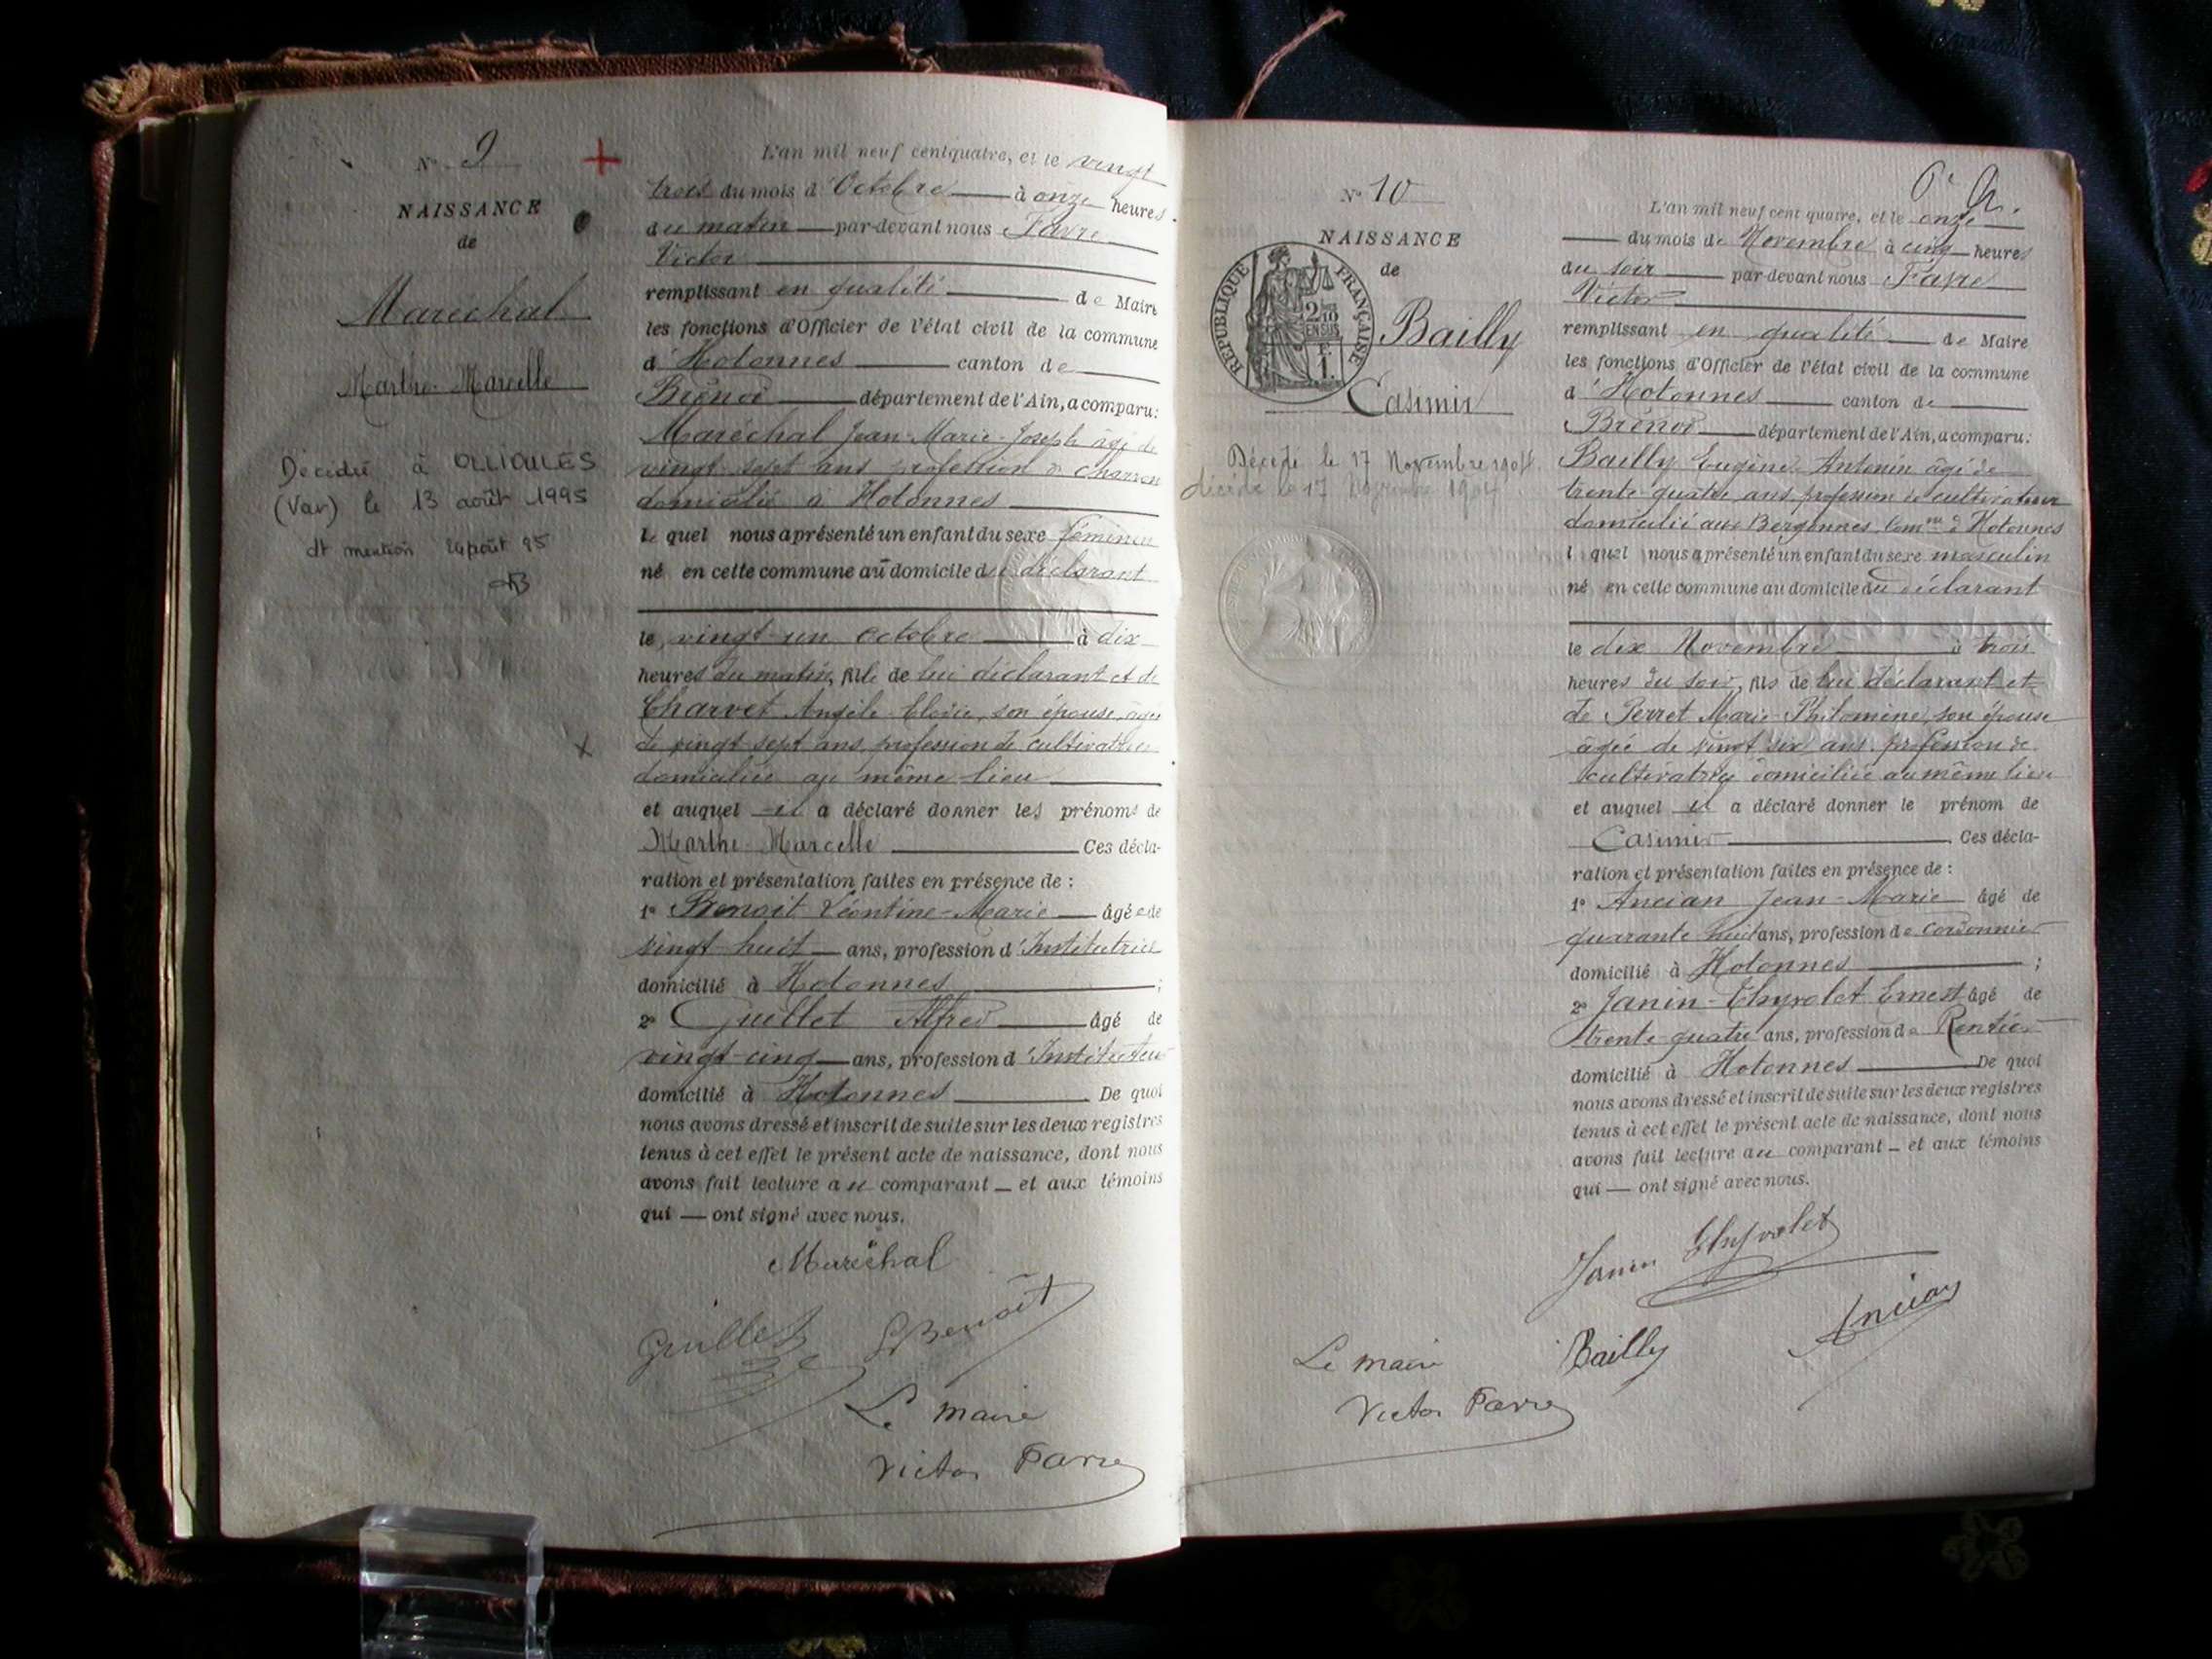 N° 9
NAISSANCE
de
Maréchal
Marthe Marcelle
Décédée à OLLIOULES
(Var) le 13 août 1995
dt mention 24 août 95
L'an mil neuf cent quatre, et le vingt
trois du mois d'Octobre à onze heures
du matin par-devant nous Favre
Victor
remplissant en qualité de Maire
les fonctions d'Officier de l'état civil de la commune
d'Hotonnes canton de
Brénod département de l'Ain, a comparu:
Maréchal Jean-Marie-Joseph âgé de
vingt sept ans profession de charron
domicilié à Hotonnes
lequel nous a présenté un enfant du sexe féminin
né en cette commune au domicile du déclarant
le vingt-un octobre à dix
heures du matin, fille de lui déclarant et de
Charvet Angèle Elosie, son épouse, âgée
de vingt sept ans, profession de cultivatrice
domiciliée au même lieu
et auquel il a déclaré donner les prénoms de
Marthe Marcelle Ces décla-
ration et présentation faites en présence de :
1° Benoit Léontine-Marie âgée de
vingt-huit ans, profession d'Institutrice
domicilié à Hotonnes ;
2° Guillet Alfred âgé de
vingt-cinq ans, profession d'Instituteur
domicilié à Hotonnes De quoi
nous avons dressé et inscrit de suite sur les deux registres
tenus à cet effet le présent acte de naissance, dont nous
avons fait lecture au comparant et aux témoins
qui ont signé avec nous.
Maréchal
Guillet L Benoit
Le maire
Victor Favre
N° 10
NAISSANCE
de
REPUBLIQUE FRANÇAISE
2/10
EN SUS
1F
Bailly
Casimir
Décédé le 17 Novembre 1904
décédé le 17 Novembre 1904
L'an mil neuf cent quatre, et le onze
du mois de Novembre à cinq heures
du soir par-devant nous Favre
Victor
remplissant en qualité de Maire
les fonctions d'Officier de l'état civil de la commune
d'Hotonnes canton de
Brénod département de l'Ain, a comparu:
Bailly Eugène-Antonin âgé de
trente-quatre ans, profession de cultivateur
domicilié aux Bergonnes, Comne d'Hotonnes
lequel nous a présenté un enfant du sexe masculin
né en cette commune au domicile du déclarant
le dix Novembre à trois
heures du soir, fils de lui déclarant et
de Perret Marie-Philomène, son épouse
âgée de vingt six ans, profession de
cultivatrice domiciliée au même lieu
et auquel il a déclaré donner le prénom de
Casimir Ces décla-
ration et présentation faites en présence de :
1° Ancian Jean-Marie âgé de
quarante huit ans, profession de cordonnier
domicilié à Hotonnes ;
2° Janin-Thyvolet Ernest âgé de
trente quatre ans, profession de Rentier
domicilié à Hotonnes De quoi
nous avons dressé et inscrit de suite sur les deux registres
tenus à cet effet le présent acte de naissance, dont nous
avons fait lecture au comparant et aux témoins
qui ont signé avec nous.
Janin Thyvolet
Le maire Bailly Ancian
Victor Favre